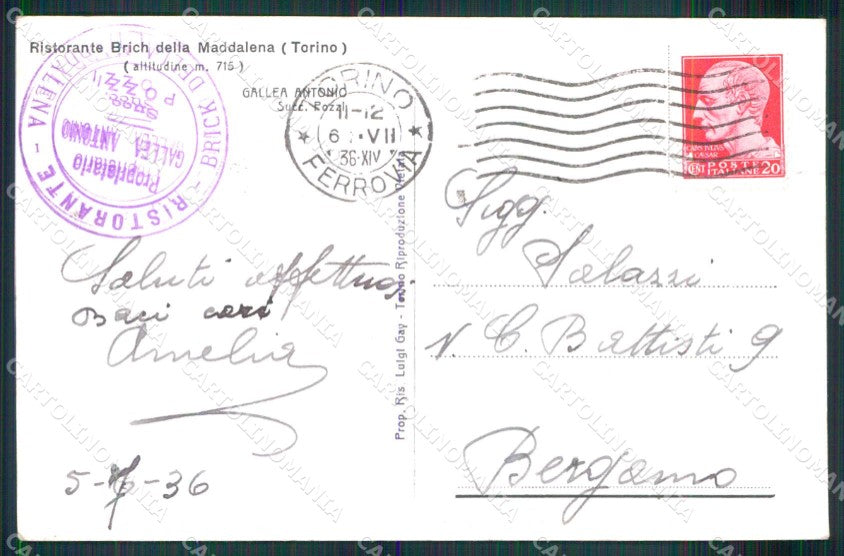 Ristorante Brich della Maddalena ( Torino )
( altitudine m. 715 )
GALLEA ANTONIO
Succ. Pozzi
RISTORANTE - BRICK DELLA MADDALENA -
Proprietario
GALLEA ANTONIO
Succ.
POZZI
TORINO
11-12
6 · VII
36·XIV
FERROVIA
POSTE
ITALIANE
20
Saluti affettuosi
Baci cari
Amelia
5-7-36
Prop. Ris Luigi Gay - Torino Riproduzione Vietata
Sigg.
Salassi
V. C. Battisti 9
Bergamo
CARTOLINOMANIA